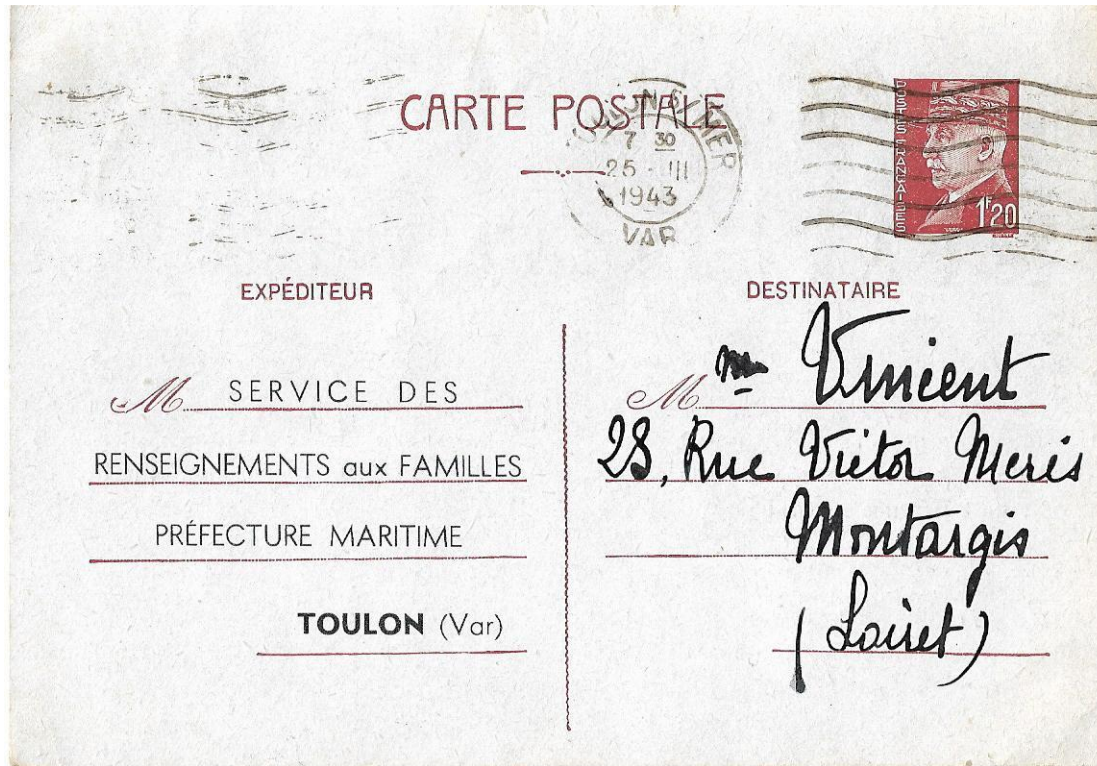 CARTE POSTALE
7 30
25 III
1943
VAR
POSTES FRANÇAISES
1F20
EXPÉDITEUR
M SERVICE DES
RENSEIGNEMENTS aux FAMILLES
PRÉFECTURE MARITIME
TOULON (Var)
DESTINATAIRE
M me Vincent
28, Rue Victor Meris
Montargis
(Loiret)